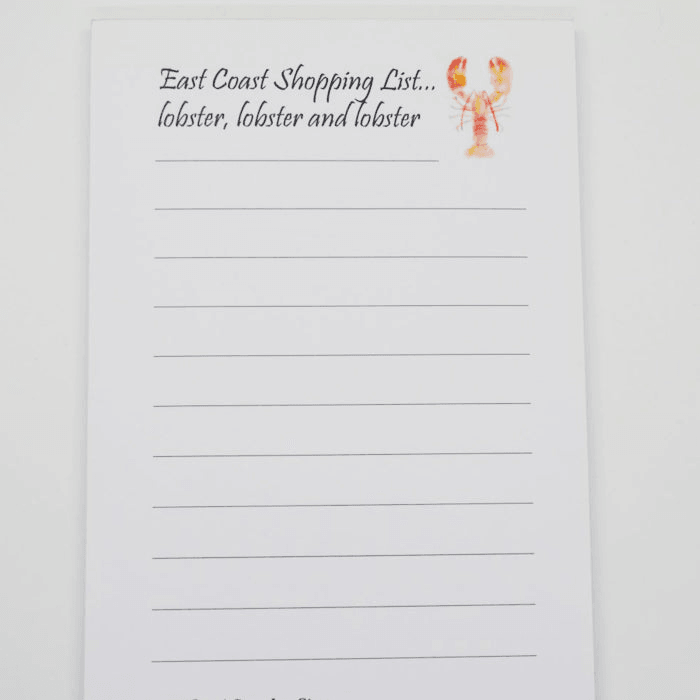 East Coast Shopping List...
lobster, lobster and lobster